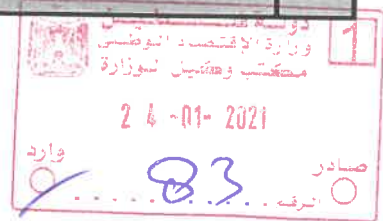 دولة فلسطين
وزارة الإقتصاد الوطني
مكتب وكيل الوزارة
1
24-01-2021
وارد
صادر
83
الرقم